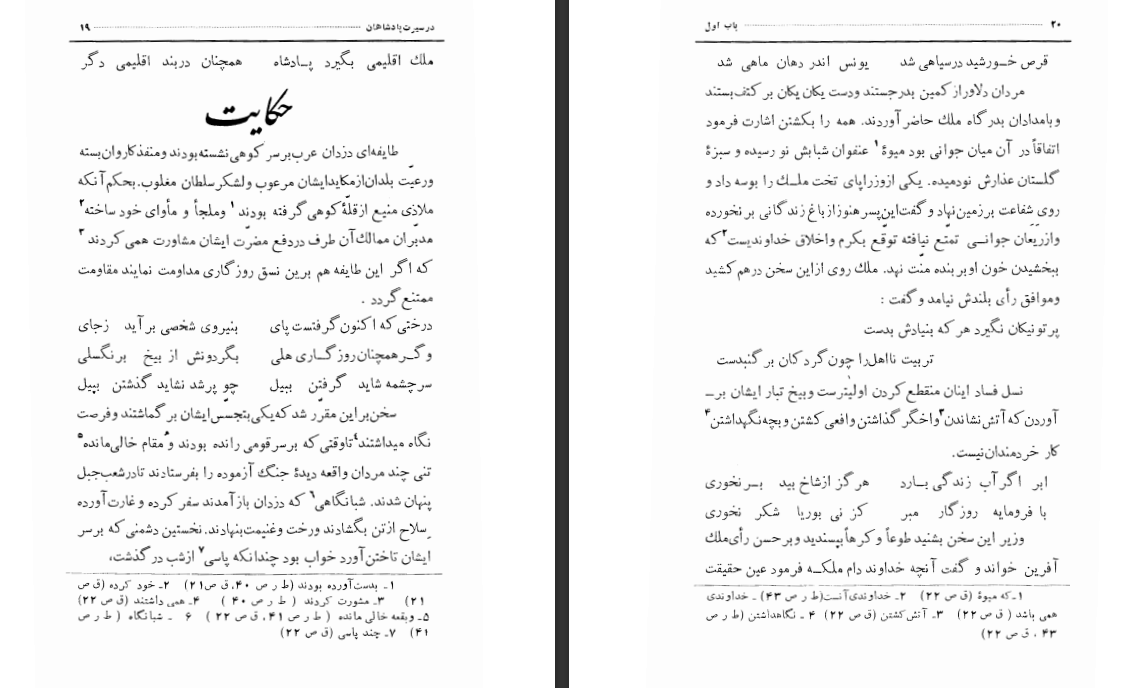 در سیرت پادشاهان ۱۹
ملك اقلیمی بگیرد پادشاه همچنان دربند اقلیمی دگر
حکایت
طایفه‌ای دزدان عرب بر سر کوهی نشسته بودند و منفذ کاروان بسته
و رعیّت بلدان از مکاید ایشان مرعوب و لشکر سلطان مغلوب. بحکم آنکه
ملاذی منیع از قلّهٔ کوهی گرفته بودند ۱ و ملجأ و مأوای خود ساخته ۲
مدبّران ممالك آن طرف در دفع مضرّت ایشان مشاورت همی کردند ۳
که اگر این طایفه هم برین نسق روزگاری مداومت نمایند مقاومت
ممتنع گردد .
درختی که اکنون گرفتست پای بنیروی شخصی بر آید زجای
وگر همچنان روزگاری هلی بگردونش از بیخ برنگسلی
سرچشمه شاید گرفتن ببیل چو پر شد نشاید گذشتن بپیل
سخن بر این مقرّر شد که یکی بتجسّس ایشان بر گماشتند و فرصت
نگاه میداشتند ۴ تا وقتی که بر سر قومی رانده بودند و مقام خالی مانده ۵
تنی چند مردان واقعه دیدهٔ جنگ آزموده را بفرستادند تا در شعب جبل
پنهان شدند. شبانگاهی ۶ که دزدان باز آمدند سفر کرده و غارت آورده
سلاح از تن بگشادند و رخت و غنیمت بنهادند. نخستین دشمنی که بر سر
ایشان تاختن آورد خواب بود چندانکه پاسی ۷ از شب در گذشت،
۱ـ بدست آورده بودند (ط ر ص ۴۰، ق ص ۲۱) ۲ـ خود کرده (ق ص
۲۱) ۳ـ مشورت کردند ( ط ر ص ۴۰ ) ۴ـ همی داشتند (ق ص ۲۲)
۵ـ وبقعه خالی مانده ( ط ر ص ۴۱، ق ص ۲۲ ) ۶ ـ شبانگاه ( ط ر ص
۴۱) ۷ـ چند پاسی (ق ص ۲۲)
باب اول ۲۰
قرص خورشید در سیاهی شد یونس اندر دهان ماهی شد
مردان دلاور از کمین بدر جستند و دست یکان یکان بر کتف بستند
و بامدادان بدرگاه ملك حاضر آوردند. همه را بکشتن اشارت فرمود
اتفاقاً در آن میان جوانی بود میوهٔ ۱ عنفوان شبابش نو رسیده و سبزهٔ
گلستان عذارش نودمیده. یکی از وزرا پای تخت ملك را بوسه داد و
روی شفاعت بر زمین نهاد و گفت این پسر هنوز از باغ زندگانی بر نخورده
و از ریعان جوانی تمتّع نیافته توقّع بکرم و اخلاق خداوندیست ۲ که
ببخشیدن خون او بر بنده منّت نهد. ملك روی از این سخن در هم کشید
و موافق رأی بلندش نیامد و گفت :
پرتو نیکان نگیرد هر که بنیادش بدست
تربیت نااهل را چون گردکان بر گنبدست
نسل فساد اینان منقطع کردن اولیترست و بیخ تبار ایشان بر ـ
آوردن که آتش نشاندن ۳ و اخگر گذاشتن و افعی کشتن و بچه نگهداشتن ۴
کار خردمندان نیست.
ابر اگر آب زندگی بارد هرگز از شاخ بید بر نخوری
با فرومایه روزگار مبر کز نی بوریا شکر نخوری
وزیر این سخن بشنید طوعاً و کرهاً بپسندید و بر حسن رأی ملك
آفرین خواند و گفت آنچه خداوند دام ملکه فرمود عین حقیقت
۱ـ که میوهٔ (ق ص ۲۲) ۲ـ خداوندی آنست (ط ر ص ۴۳) ـ خداوندی
همی باشد ( ق ص ۲۲) ۳ـ آتش کشتن (ق ص ۲۲) ۴ ـ نگاهداشتن (ط ر ص
۴۳ ، ق ص ۲۲)